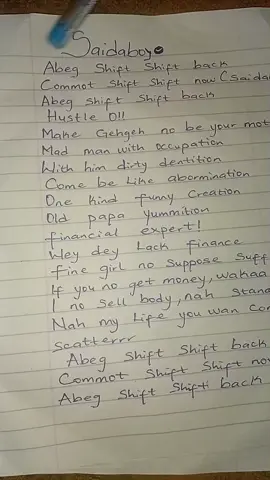 Saidaboy
Abeg Shift Shift back
Commot Shift Shift now (Saida
Abeg Shift Shift back
Hustle O!!
Make Gehgeh no be your mot
Mad man with occupation
With him dirty dentition
Come be like abormination
One kind funny Creation
Old papa yummition
financial expert!
Wey dey Lack finance
fine girl no suppose Suff
If you no get money, wakaa
I no sell body, nah Stan
Nah my life you wan Con
scatterrr
Abeg Shift Shift back
Commot Shift Shift no
Abeg Shift Shift back